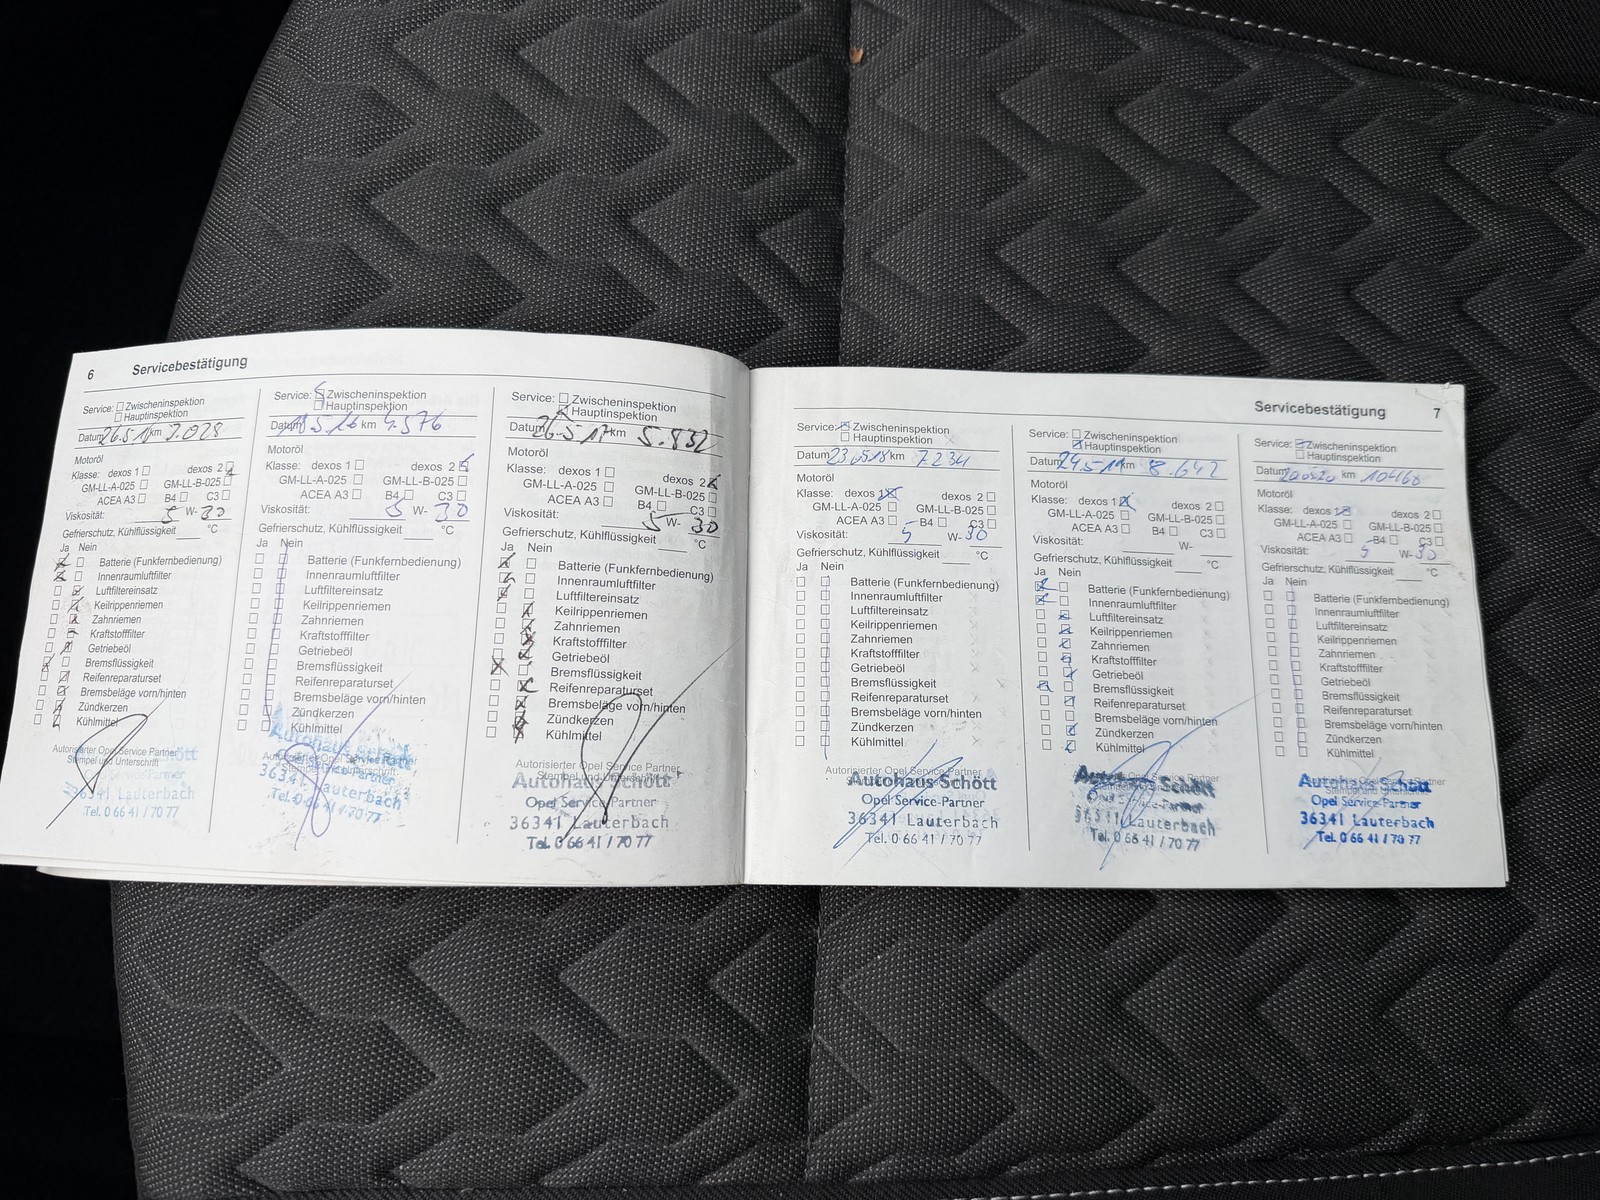 6 Servicebestätigung
Service: Zwischeninspektion
Hauptinspektion
Datum 26.5.1 km 3.028
Motoröl
Klasse: dexos 1 dexos 2
GM-LL-A-025 GM-LL-B-025
ACEA A3 B4 C3
Viskosität: 5 W- 30
Gefrierschutz, Kühlflüssigkeit °C
Ja Nein
Batterie (Funkfernbedienung)
Innenraumluftfilter
Luftfiltereinsatz
Keilrippenriemen
Zahnriemen
Kraftstofffilter
Getriebeöl
Bremsflüssigkeit
Reifenreparaturset
Bremsbeläge vorn/hinten
Zündkerzen
Kühlmittel
Autorisierter Opel Service Partner
Stempel und Unterschrift
Opel Service-Partner
36341 Lauterbach
Tel. 0 66 41 / 70 77
Service: Zwischeninspektion
Hauptinspektion
Datum 18.5.16 km 4.576
Motoröl
Klasse: dexos 1 dexos 2
GM-LL-A-025 GM-LL-B-025
ACEA A3 B4 C3
Viskosität: 5 W- 30
Gefrierschutz, Kühlflüssigkeit °C
Ja Nein
Batterie (Funkfernbedienung)
Innenraumluftfilter
Luftfiltereinsatz
Keilrippenriemen
Zahnriemen
Kraftstofffilter
Getriebeöl
Bremsflüssigkeit
Reifenreparaturset
Bremsbeläge vorn/hinten
Zündkerzen
Kühlmittel
Autohaus Schött
Autorisierter Opel Service Partner
Stempel und Unterschrift
36341 Lauterbach
Tel. 0 66 41 / 70 77
Service: Zwischeninspektion
Hauptinspektion
Datum 26.5.17 km 5.832
Motoröl
Klasse: dexos 1 dexos 2
GM-LL-A-025 GM-LL-B-025
ACEA A3 B4 C3
Viskosität: 5 W- 30
Gefrierschutz, Kühlflüssigkeit °C
Ja Nein
Batterie (Funkfernbedienung)
Innenraumluftfilter
Luftfiltereinsatz
Keilrippenriemen
Zahnriemen
Kraftstofffilter
Getriebeöl
Bremsflüssigkeit
Reifenreparaturset
Bremsbeläge vorn/hinten
Zündkerzen
Kühlmittel
Autorisierter Opel Service Partner
Stempel und Unterschrift
Autohaus Schött
Opel Service-Partner
36341 Lauterbach
Tel. 0 66 41 / 70 77
Servicebestätigung 7
Service: Zwischeninspektion
Hauptinspektion
Datum 23.05.18 km 7.234
Motoröl
Klasse: dexos 1 dexos 2
GM-LL-A-025 GM-LL-B-025
ACEA A3 B4 C3
Viskosität: 5 W- 30
Gefrierschutz, Kühlflüssigkeit °C
Ja Nein
Batterie (Funkfernbedienung)
Innenraumluftfilter
Luftfiltereinsatz
Keilrippenriemen
Zahnriemen
Kraftstofffilter
Getriebeöl
Bremsflüssigkeit
Reifenreparaturset
Bremsbeläge vorn/hinten
Zündkerzen
Kühlmittel
Autorisierter Opel Service Partner
Autohaus Schött
Opel Service-Partner
36341 Lauterbach
Tel. 0 66 41 / 70 77
Service: Zwischeninspektion
Hauptinspektion
Datum 24.5.19 km 8.642
Motoröl
Klasse: dexos 1 dexos 2
GM-LL-A-025 GM-LL-B-025
ACEA A3 B4 C3
Viskosität: W-
Gefrierschutz, Kühlflüssigkeit °C
Ja Nein
Batterie (Funkfernbedienung)
Innenraumluftfilter
Luftfiltereinsatz
Keilrippenriemen
Zahnriemen
Kraftstofffilter
Getriebeöl
Bremsflüssigkeit
Reifenreparaturset
Bremsbeläge vorn/hinten
Zündkerzen
Kühlmittel
Autorisierter Opel Service Partner
Autohaus Schött
Opel Service-Partner
36341 Lauterbach
Tel. 0 66 41 / 70 77
Service: Zwischeninspektion
Hauptinspektion
Datum 20.05.20 km 10460
Motoröl
Klasse: dexos 1 dexos 2
GM-LL-A-025 GM-LL-B-025
ACEA A3 B4 C3
Viskosität: 5 W- 30
Gefrierschutz, Kühlflüssigkeit °C
Ja Nein
Batterie (Funkfernbedienung)
Innenraumluftfilter
Luftfiltereinsatz
Keilrippenriemen
Zahnriemen
Kraftstofffilter
Getriebeöl
Bremsflüssigkeit
Reifenreparaturset
Bremsbeläge vorn/hinten
Zündkerzen
Kühlmittel
Autohaus Schött
Opel Service-Partner
36341 Lauterbach
Tel. 0 66 41 / 70 77